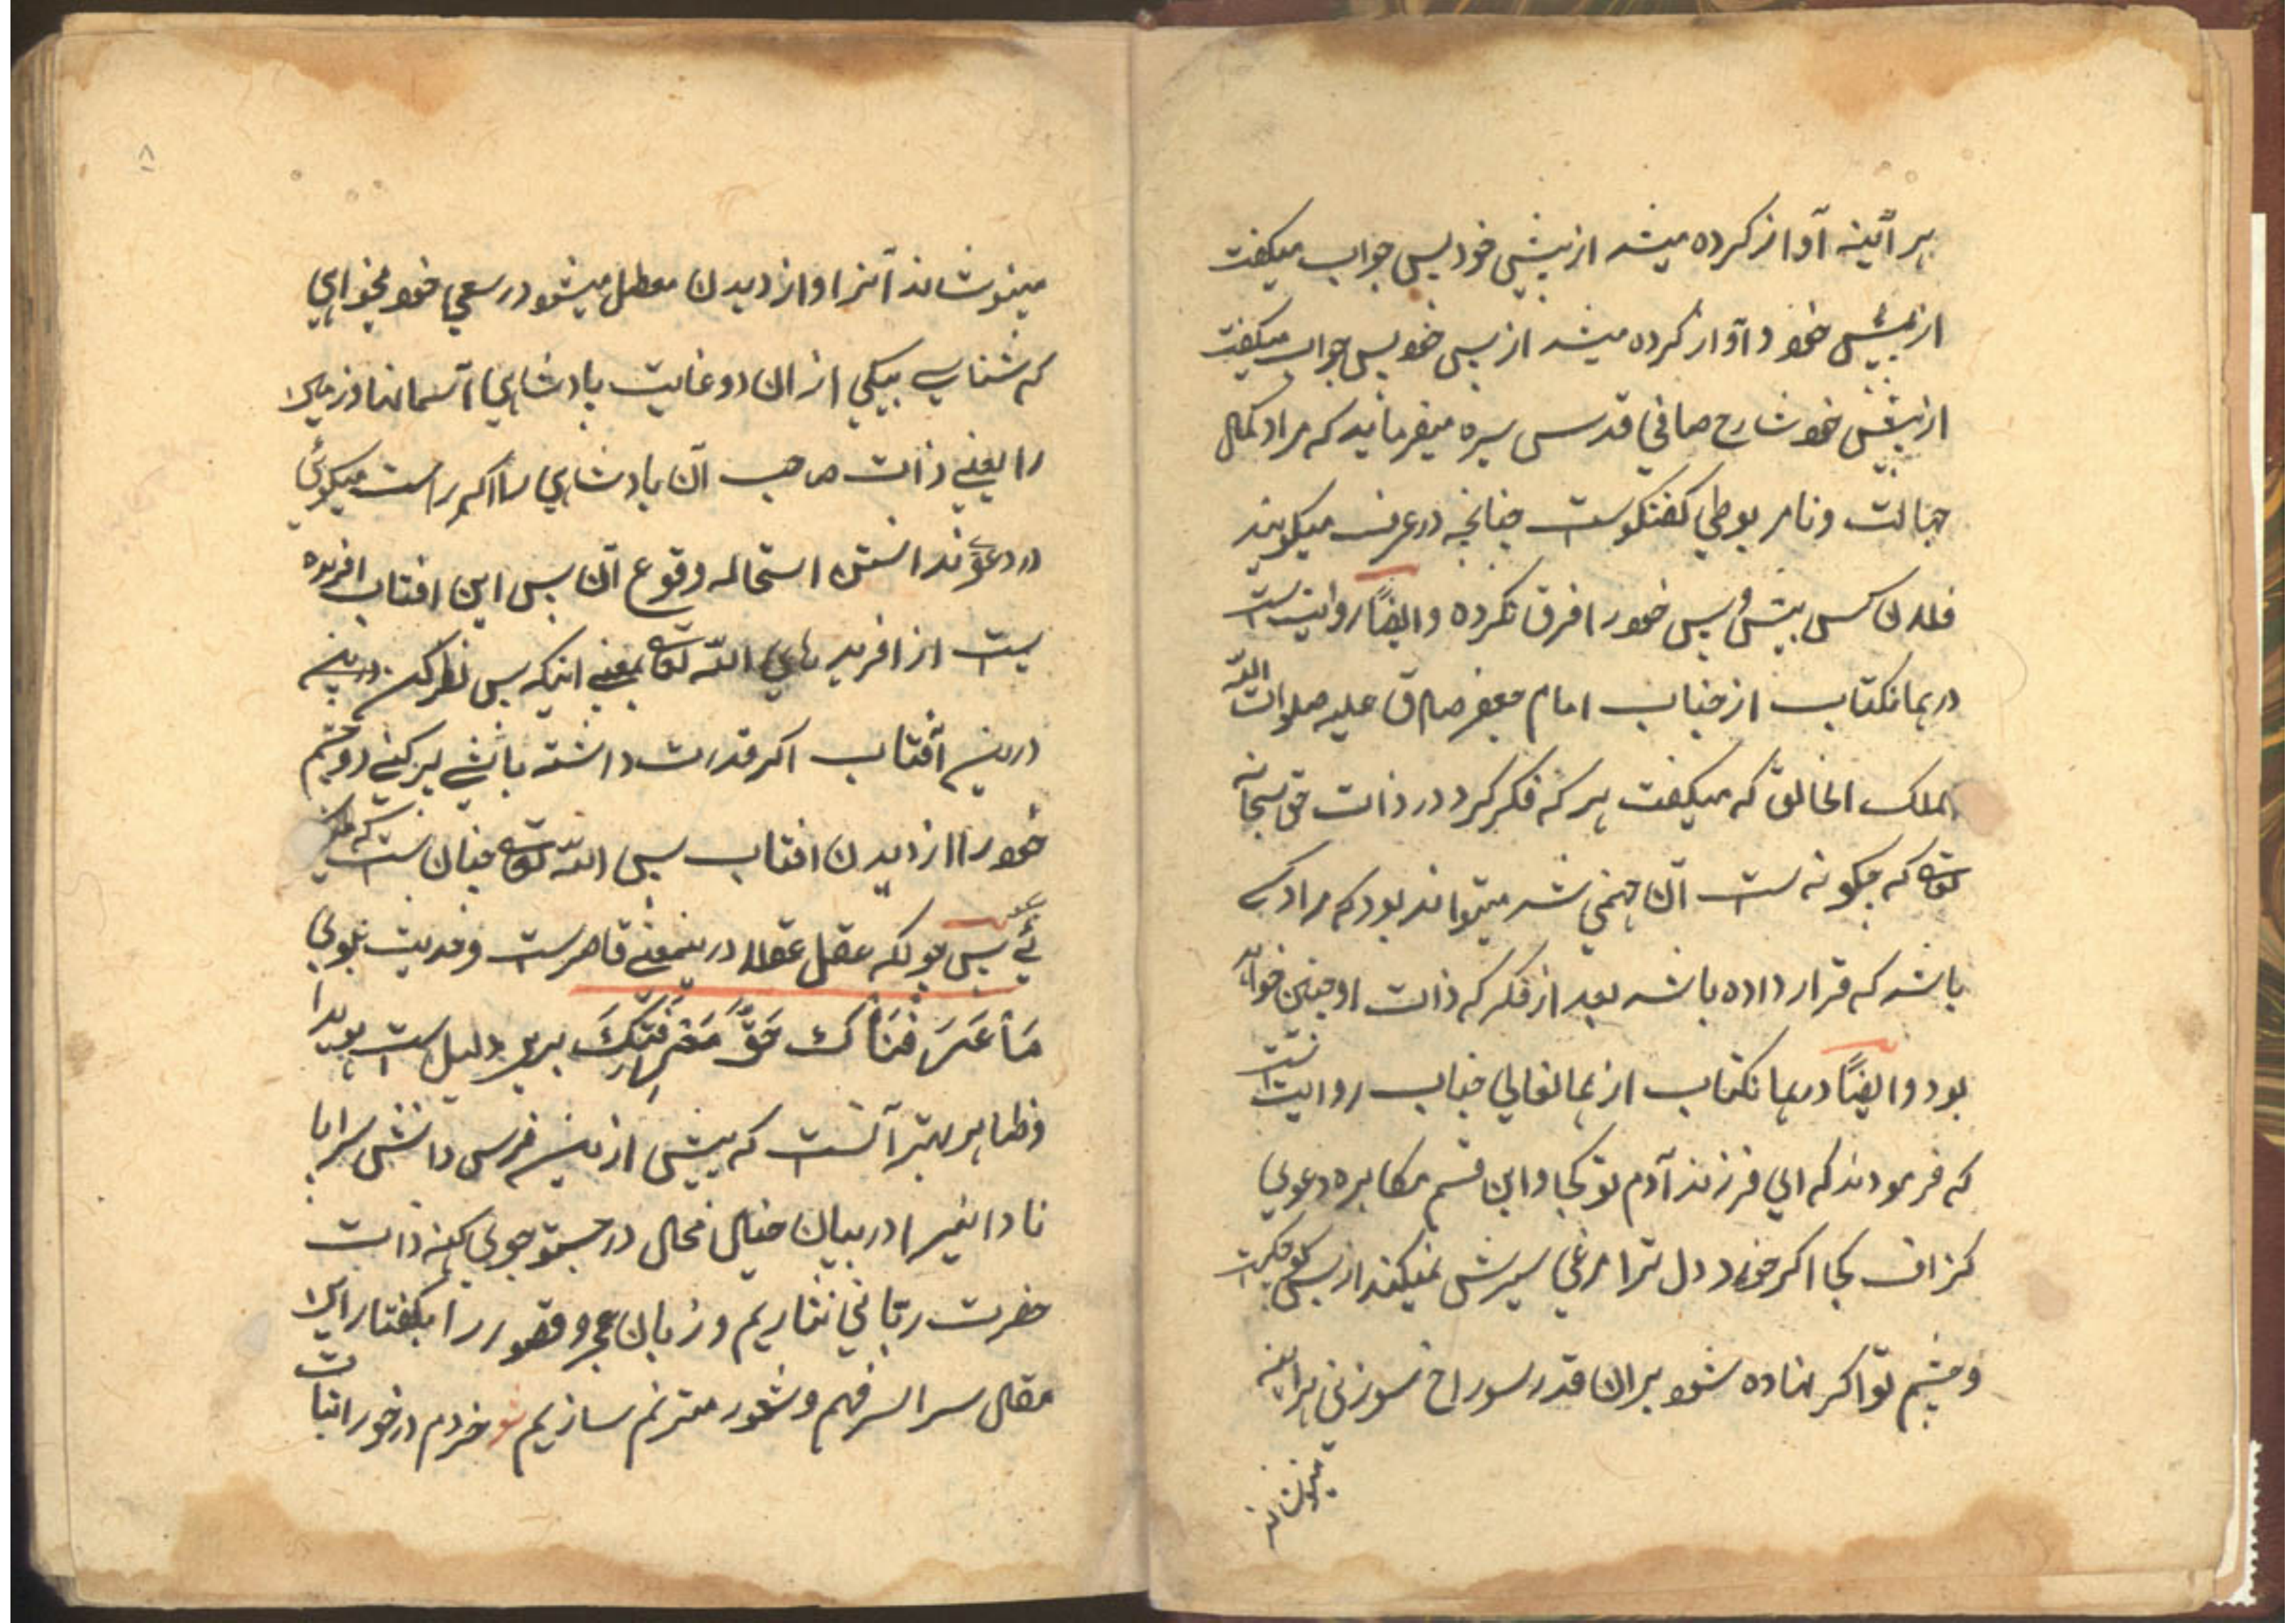 هر آئینه آواز کرده میشد از پیش خود پس جواب میکفت
از پیش خود و آواز کرده میشد از پس خود پس جواب میکفت
از پیش خود شارح صافی قدس سره میفرماید که مراد کمال
جهالت و نامربوطی کفتکوست چنانچه در عرف میکویند
فلان کس پیش و پس خود را فرق نکرده و ایضًا روایتست
در همانکتاب از جناب امام جعفر صادق علیه صلوات الله
الملک الخالق که میکفت هر که فکر کرد در ذات حق سبحانه
تعالی که چکونه ست آن جهنمی شد میتواند بود که مراد کسی
باشد که قرار داده باشد بعد از فکر که ذات او چنین خواهد
بود و ایضًا در همانکتاب از همانعالی جناب روایتست
که فرمودند که ای فرزند آدم تو کجا و این قسم مکابره و دعوی
کزاف کجا اکر خورد دل ترا مرغی سیرش نمیکند از بس کوچکیت
و چشم تو اکر نهاده شود بر آن قدر سوراخ سوزنی هر آینه
میپوشاند
۸
میپوشاند آنرا و از دیدن معطل میشود در سعی خود میخواهی
که شناسی بیکی از آن دو غایت بادشاهی آسمانها و زمین
را یعنی ذات صاحب آن بادشاهی را اکر راست میکوئی
در دعوی ندانستن استحاله وقوع آن پس این افتاب افریده
یست از افریدهای الله تعالی بمعنی اینکه پس نظر کن درین
درین آفتاب اکر قدرت داشته باشی پر کنی دو چشم
خود را از دیدن افتاب پس الله تعالی چنان ست که میکو
ئی پس چونکه عقل عقلا درینمعنی قاصرست و حدیث نبوی
مَا عَرَفْنَاكَ حَقَّ مَعْرِفَتِكَ برین دلیل ست هویدا
و ظاهر بهتر آنست که پیش ازین فرس دانش سراپا
نادانیرا در بیان خیال محال در جستوجوی کنه ذات
حضرت ربّانی نتازیم و زبان عجز و قصور را بکفتار این
مقال سراسر فهم و شعور مترنم سازیم شعر خردم در خور اثبات